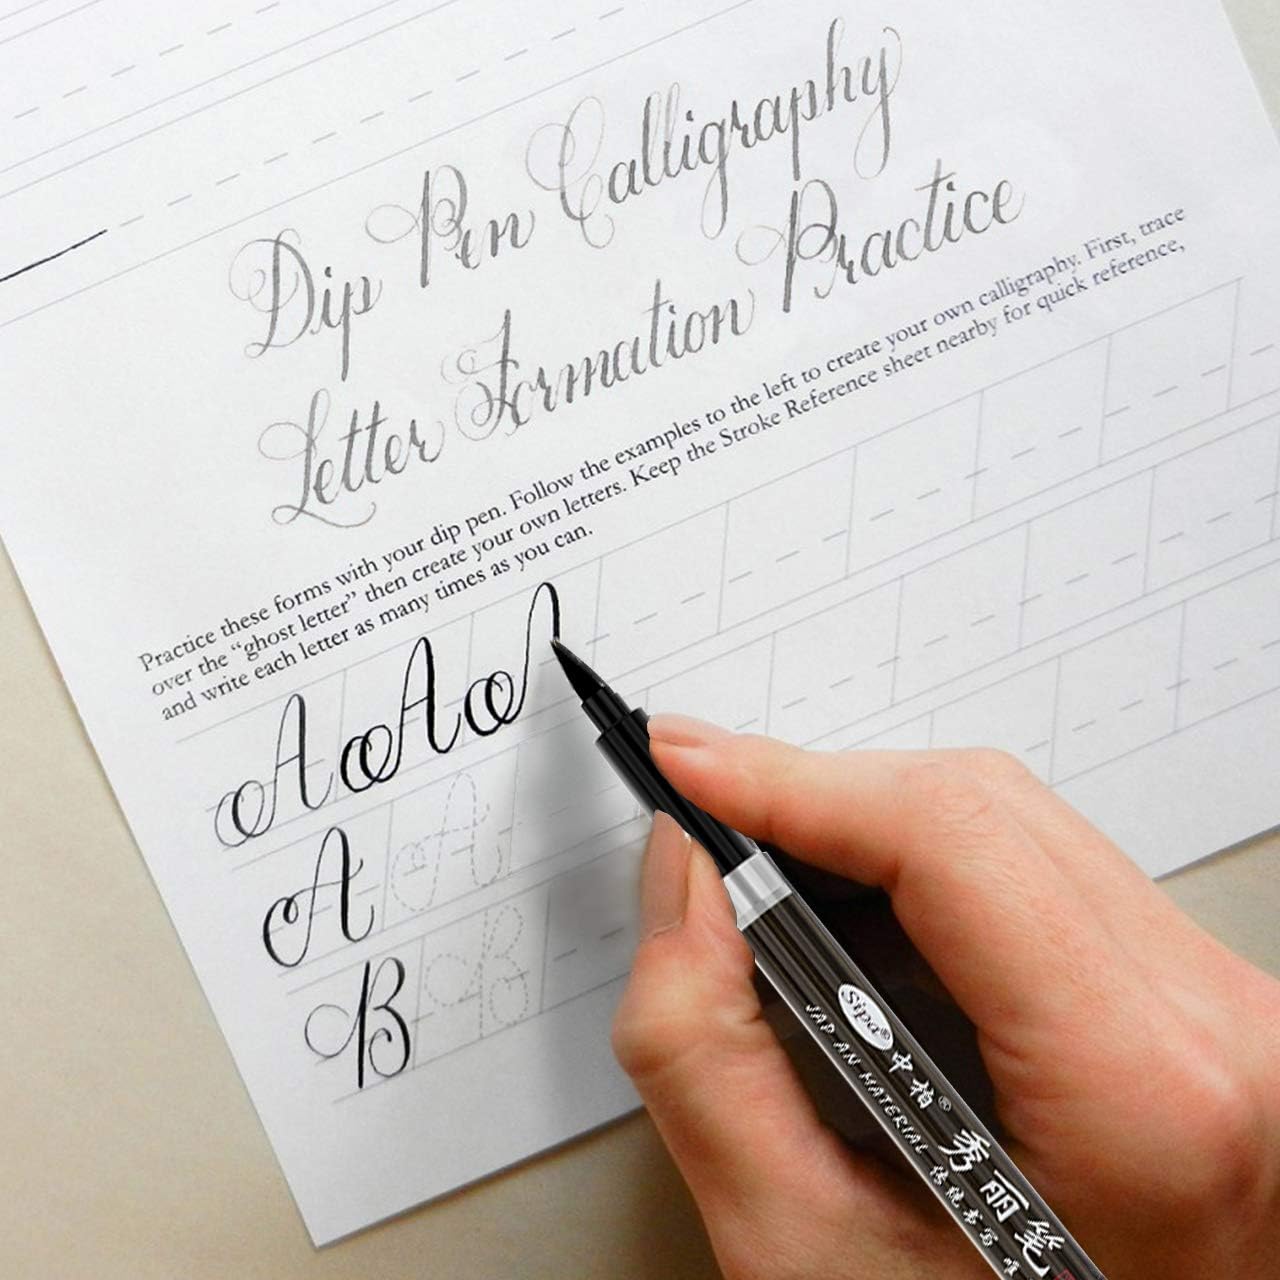 Dip Pen Calligraphy
Letter Formation Practice
Practice these forms with your dip pen. Follow the examples to the left to create your own calligraphy. First, trace
over the “ghost letter” then create your own letters. Keep the Stroke Reference sheet nearby for quick reference,
and write each letter as many times as you can.
A A
A A
B B
Sipa® 中柏® 秀丽笔
JAPAN MATERIAL 传统书写 唯